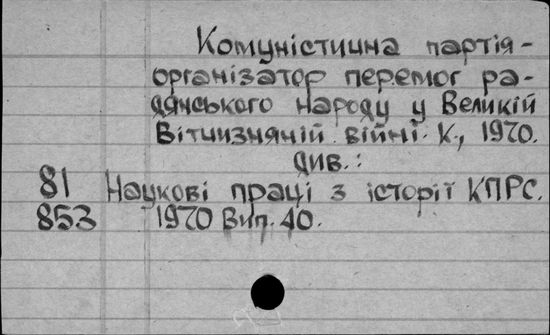 Комуністична партія-
організатор перемог ра-
дянського народу у Великій
Вітчизняній війні. К., 1970.
див.:
81 Наукові праці з історії КПРС.
853 1970 Вип. 40.